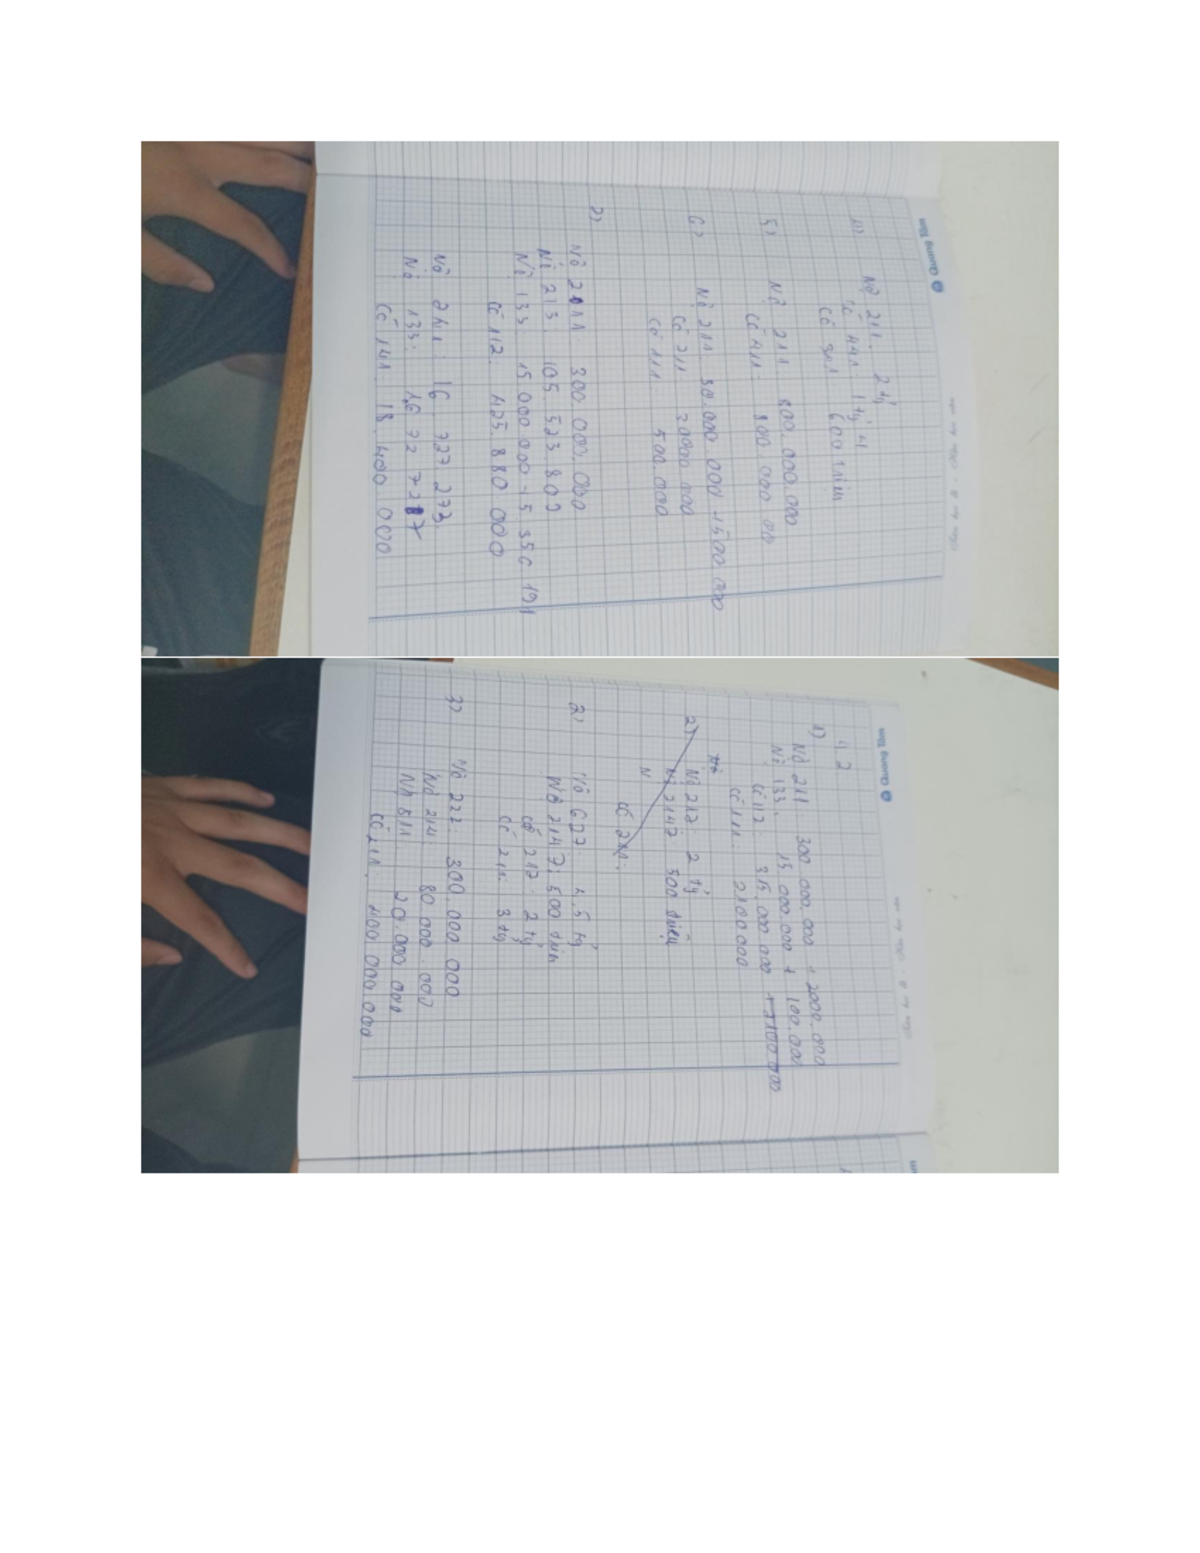 Quang Tâm
Nợ 211. 2 tỷ
Có 411 1 tỷ 4
Có 341 600 triệu
5)
Nợ 211 800.000.000
Có 411: 800.000.00
6)
Nợ 211 30.000.000 + 500.000
Có 211 30000.000
Có 111 500.000
7)
Nợ 2111. 300.000.000
Nợ 213. 105 523 809
Nợ 133. 15.000.000 + 5 350 191
Có 112: 425.880.000
Nợ 241: 16 727 273
Nợ 133. 16 72 727
Có 141 18.400.000
Quang Tâm
4.2
1)
Nợ 211 300.000.000 + 2000.000
Nợ 133. 15.000.000 + 100.000
Có 112 315.000.000 + 2100.000
Có 111. 2100.000
2)
Nợ 217: 2 tỷ
Nợ 2147: 500 triệu
N
Có 211.
2)
Nợ 627: 0,5 tỷ
Nợ 2147: 500 triệu
Có 217: 2 tỷ
Có 211: 3 tỷ
3)
Nợ 222: 300.000.000
Nợ 214: 80.000.000
Nợ 811 20.000.000
Có 211. 400.000.000